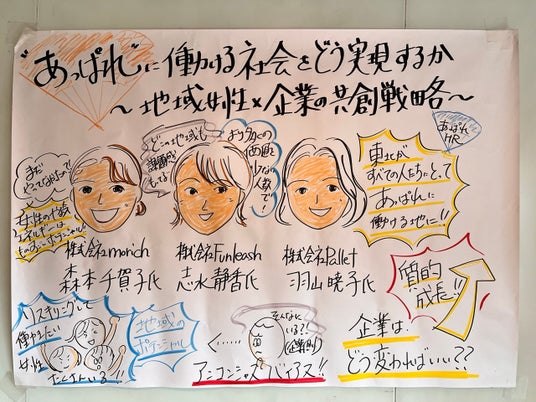 "あっぱれ"に働ける社会をどう実現するか
～地域女性×企業の共創戦略～
あっぱれ
HR
どこの地域も
課題感
もってる
東北が
すべての人たちにとって
あっぱれに
働ける地に!!
まだ
女性の十歳
株式会社morich
森本千賀子氏
株式会社Funleash
志水静香氏
株式会社Pallet
羽山暁子氏
質的
成長!!
リスキリングして
働きたい
女性
たくさんいる!!
地域の
ポテンシャル
そんなに
いる?!
(企業側)
アンコンシャスバイアス!!
企業は
どう変わればいい??